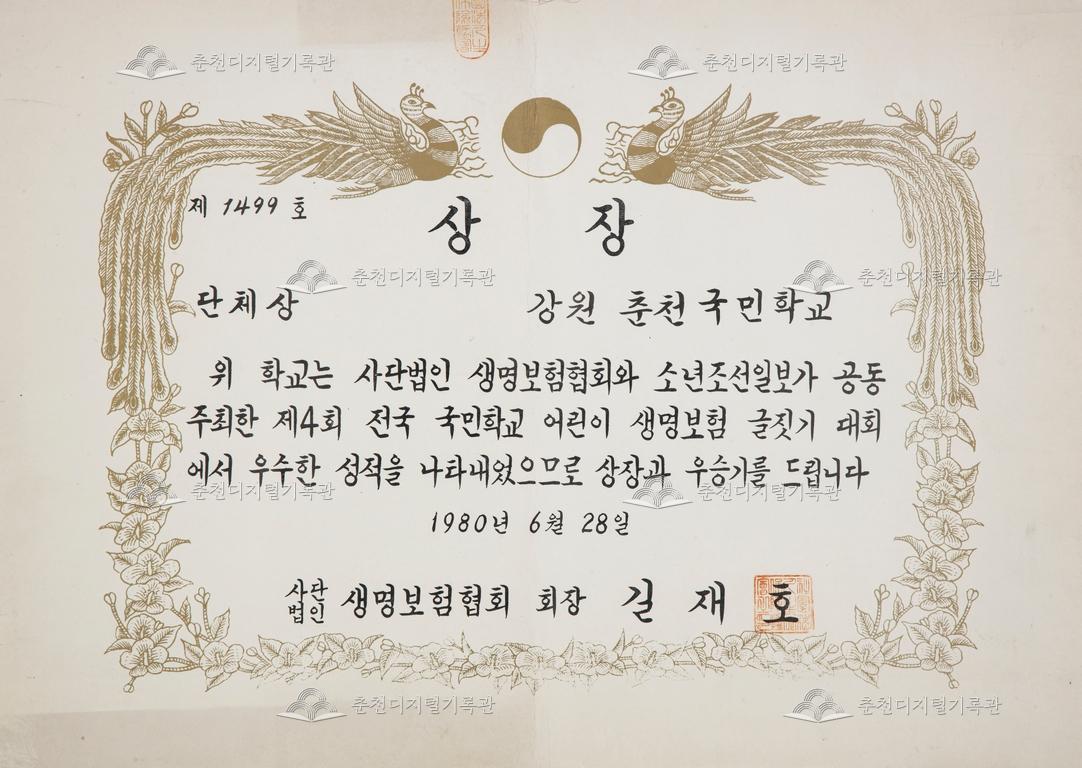 춘천디지털기록관 춘천디지털기록관
제 1499 호
상 장
춘천디지털기록관 춘천디지털기록관
단체상 강원 춘천국민학교
위 학교는 사단법인 생명보험협회와 소년조선일보가 공동
주최한 제4회 전국 국민학교 어린이 생명보험 글짓기 대회
에서 우수한 성적을 나타내었으므로 상장과 우승기를 드립니다
춘천디지털기록관 춘천디지털기록관
1980년 6월 28일
사단법인 생명보험협회 회장 길재호
춘천디지털기록관 춘천디지털기록관